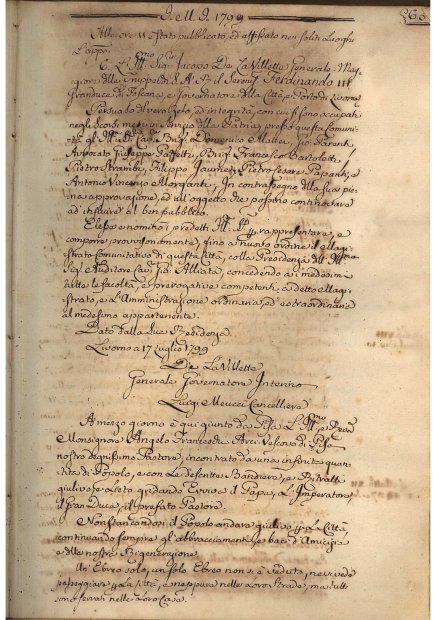 J. M. J. 1799
All'ore 11 è stato pubblicato, ed affissato nei soliti Luoghi
L'appresso
Il Sigr. Jacopo De La Villette Generale Mag-
giore delle Truppe di S. A. R. il Sereniss. Ferdinando III
Granduca di Toscana, e Governatore della Città, e Porto di Livorno
Persuaso del vero zelo, ed integrità, con cui si sono occupati
negli scorsi mesi in servizio della Patria, e pro di questa Comuni-
tà gl'Ill. Domenico Mattei, Gio.
Avvocato Giuseppe Raffetti, Francesco Bartolotti,
Pietro Strambi, Filippo Pietro Cesare Papanti, e
Antonio Vincenzio Morganti, In contrassegno della sua pie-
na approvazione, ed all'oggetto che possino continovare
ad influire al ben pubblico.
Elesse e nominò i predetti Ill. SS.ri p. rappresentare, e
comporre provvisoriamente, fino a nuovo ordine il Magi-
strato Comunitativo di questa Città, colla Presidenza dell'Ill.mo
Sigr. Auditore Alliata, concedendo ai medesimi
tutte le facoltà, e prerogative competenti a detto Magi-
strato, e l'Amministrazione ordinaria, ed estraordinaria
al medesimo appartenente.
Dato dalla sua Residenza
Livorno a 17 Luglio 1799
De La Villette
Generale Governatore Interino
Luigi Meucci Cancelliere
A mezzo giorno è qui giunto da Pisa L'Ill.mo e Rev.mo
Monsignore Angelo Franceschi Arci Vescovo di Pisa
nostro degnissimo Pastore, incontrato da una infinita quan-
tità di Popolo, e con Le descritte Bandiere, e Ritratti
giulivo, e Lieto gridando Evviva il Papa, L'Imperatore,
il Gran Duca, il prefato Pastore.
Non stancandosi il Popolo andava giulivo p. La Città
continuando sempre gl'abbracciamenti, e baci d'Amicizia
e della nostra Rigenerazione.
Un Ebreo solo, un solo Ebreo non si è veduto, nè si vede
passeggiare p. La Città, e neppure nelle Loro Strade, ma tutti
sono serrati nelle Loro Case.